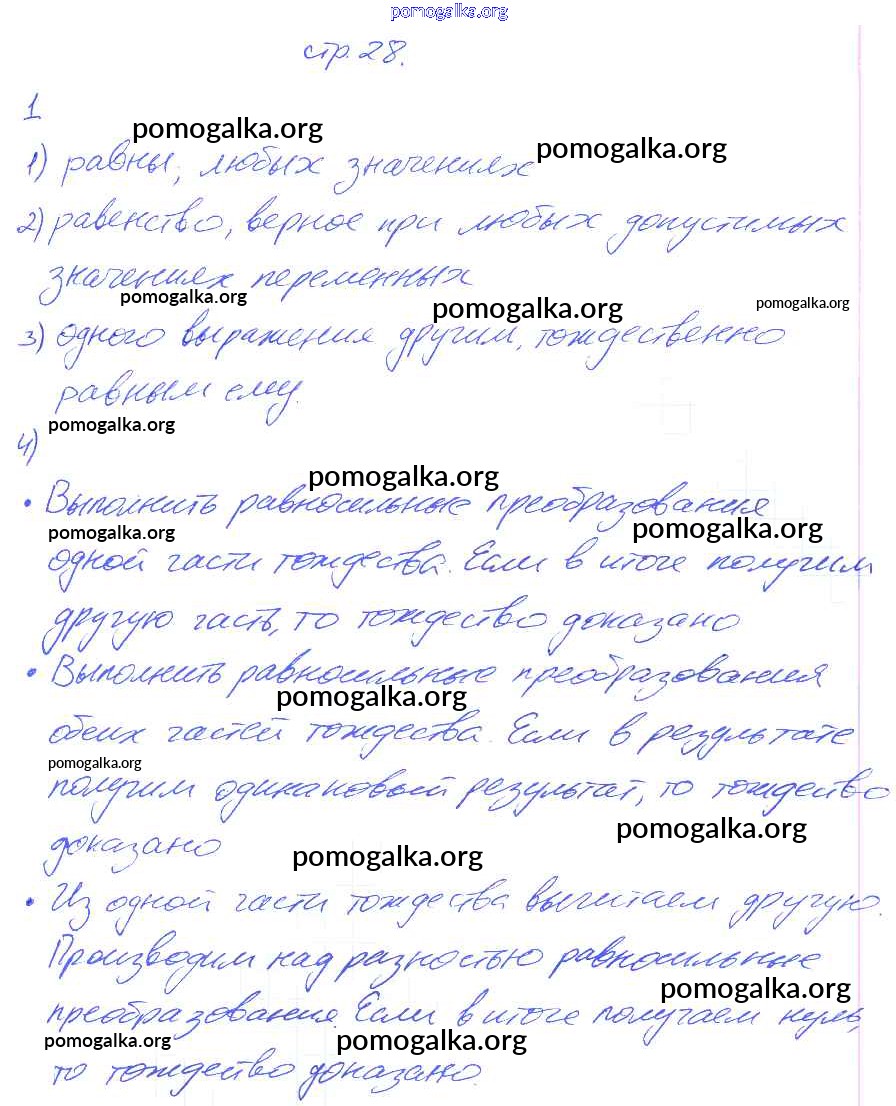 pomogalka.org
стр. 28.
1
pomogalka.org
pomogalka.org
1) равны; любых значениях
2) равенство, верное при любых допустимых
значениях переменных
pomogalka.org
pomogalka.org
pomogalka.org
3) одного выражения другим, тождественно
равным ему.
pomogalka.org
4)
pomogalka.org
• Выполнить равносильные преобразования
pomogalka.org
pomogalka.org
одной части тождества. Если в итоге получим
другую часть, то тождество доказано
• Выполнить равносильные преобразования
pomogalka.org
обеих частей тождества. Если в результате
pomogalka.org
получим одинаковый результат, то тождество
pomogalka.org
доказано
pomogalka.org
• Из одной части тождества вычитаем другую.
Производим над разностью равносильные
pomogalka.org
преобразования. Если в итоге получаем нуль,
pomogalka.org
pomogalka.org
то тождество доказано.